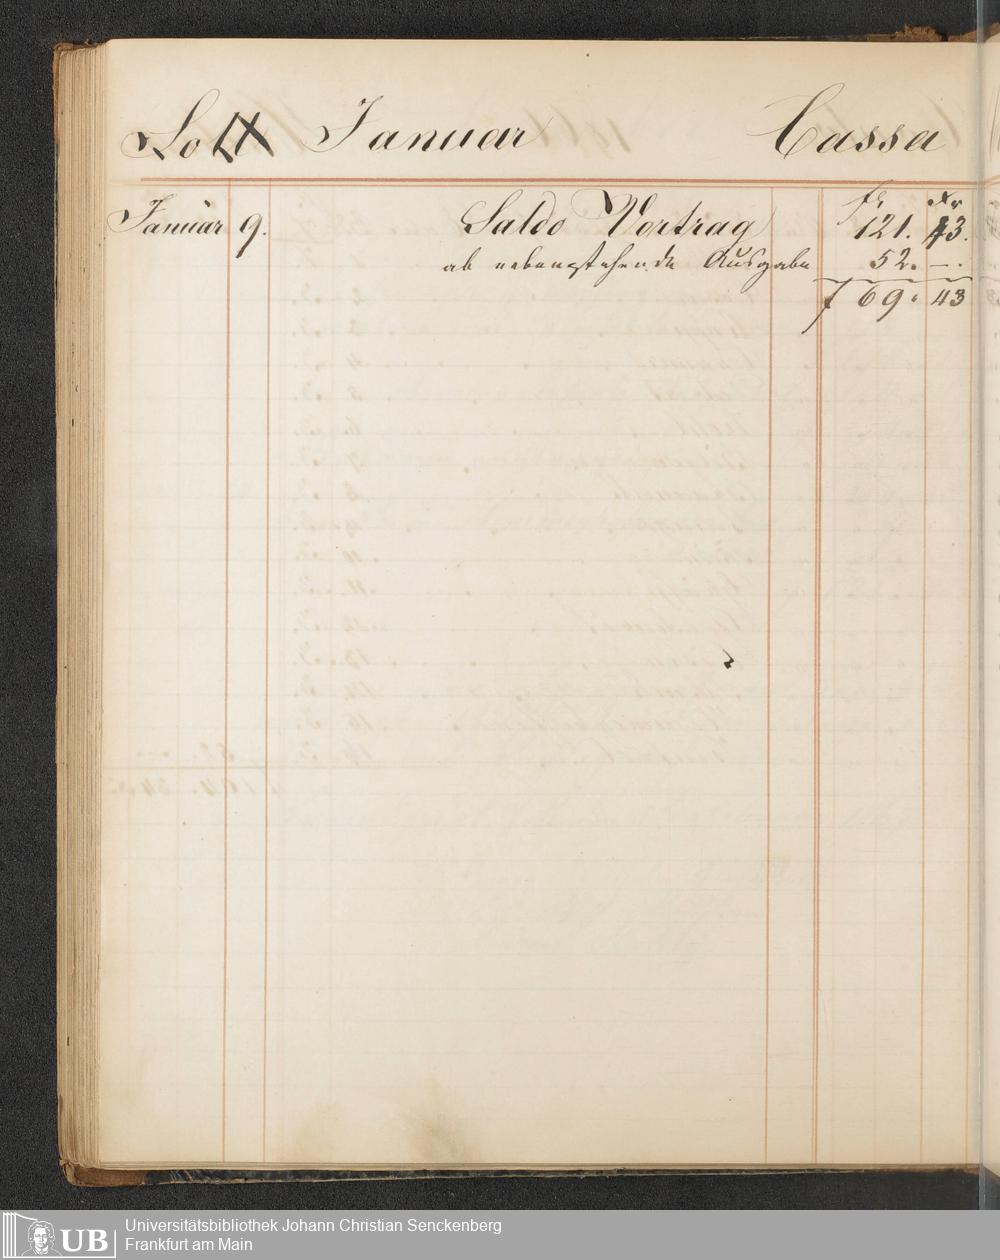 Soll Januar Cassa
fl. Xr
Januar 9. Saldo Vortrag 121. 43.
ab nebenstehende Ausgabe 52. —.
f 69. 43
UB Universitätsbibliothek Johann Christian Senckenberg
Frankfurt am Main